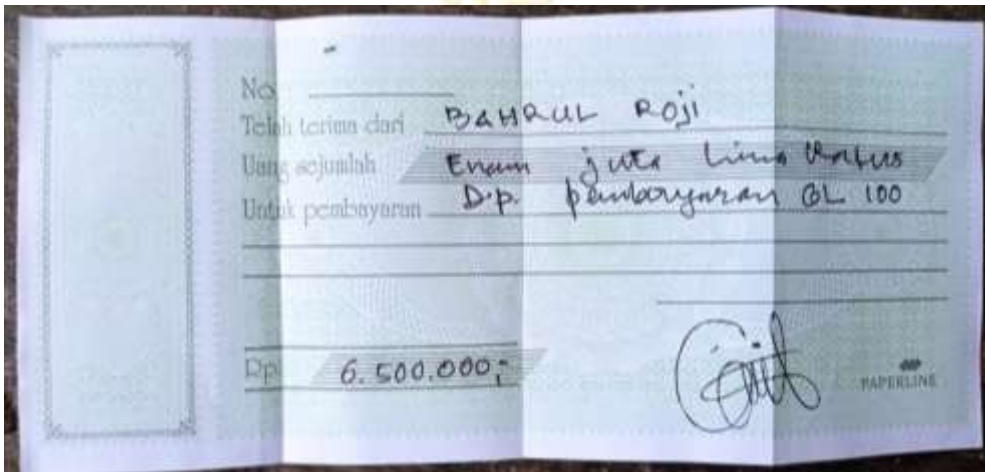 No
Telah terima dari BAHRUL ROJI
Uang sejumlah Enam juta Lima Ratus
Untuk pembayaran D.p. pembayaran GL 100
Rp. 6.500.000,-
PAPERLINE